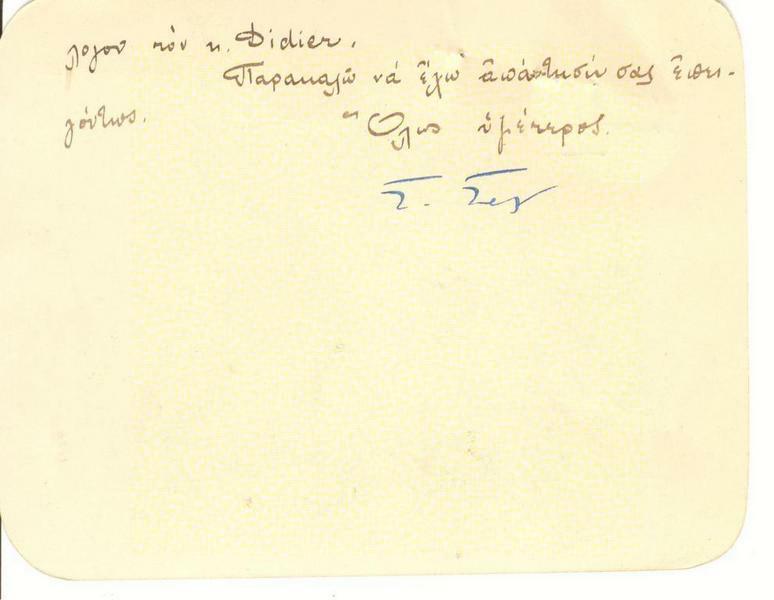 λογον τὸν κ. Didier.
Παρακαλῶ νά ἔχω ἀπάντησίν σας ἐπει-
γόντως.
Ὅλως ὑμέτερος.